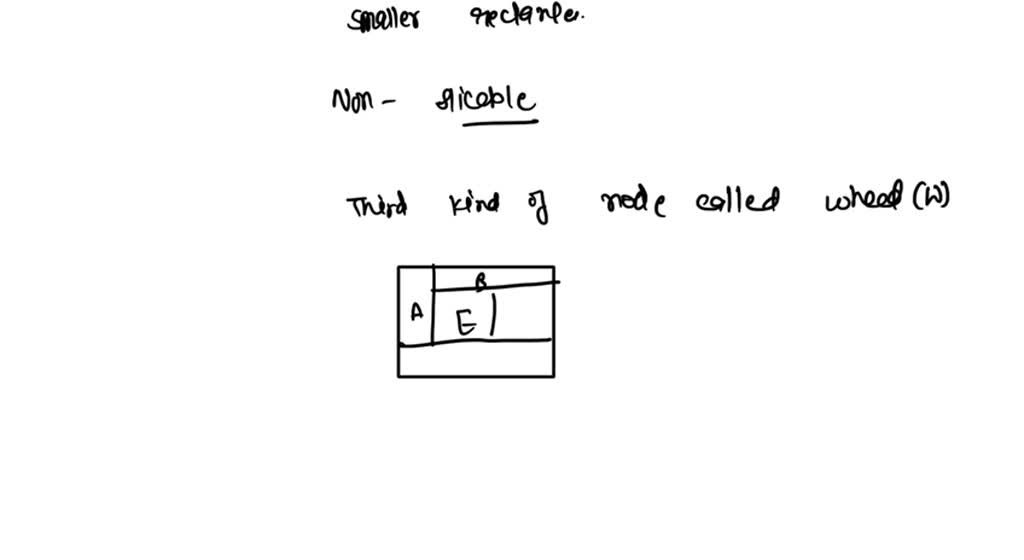 smaller rectanle.
Non - slicable
Third kind of node called wheed (W)
B
A
E